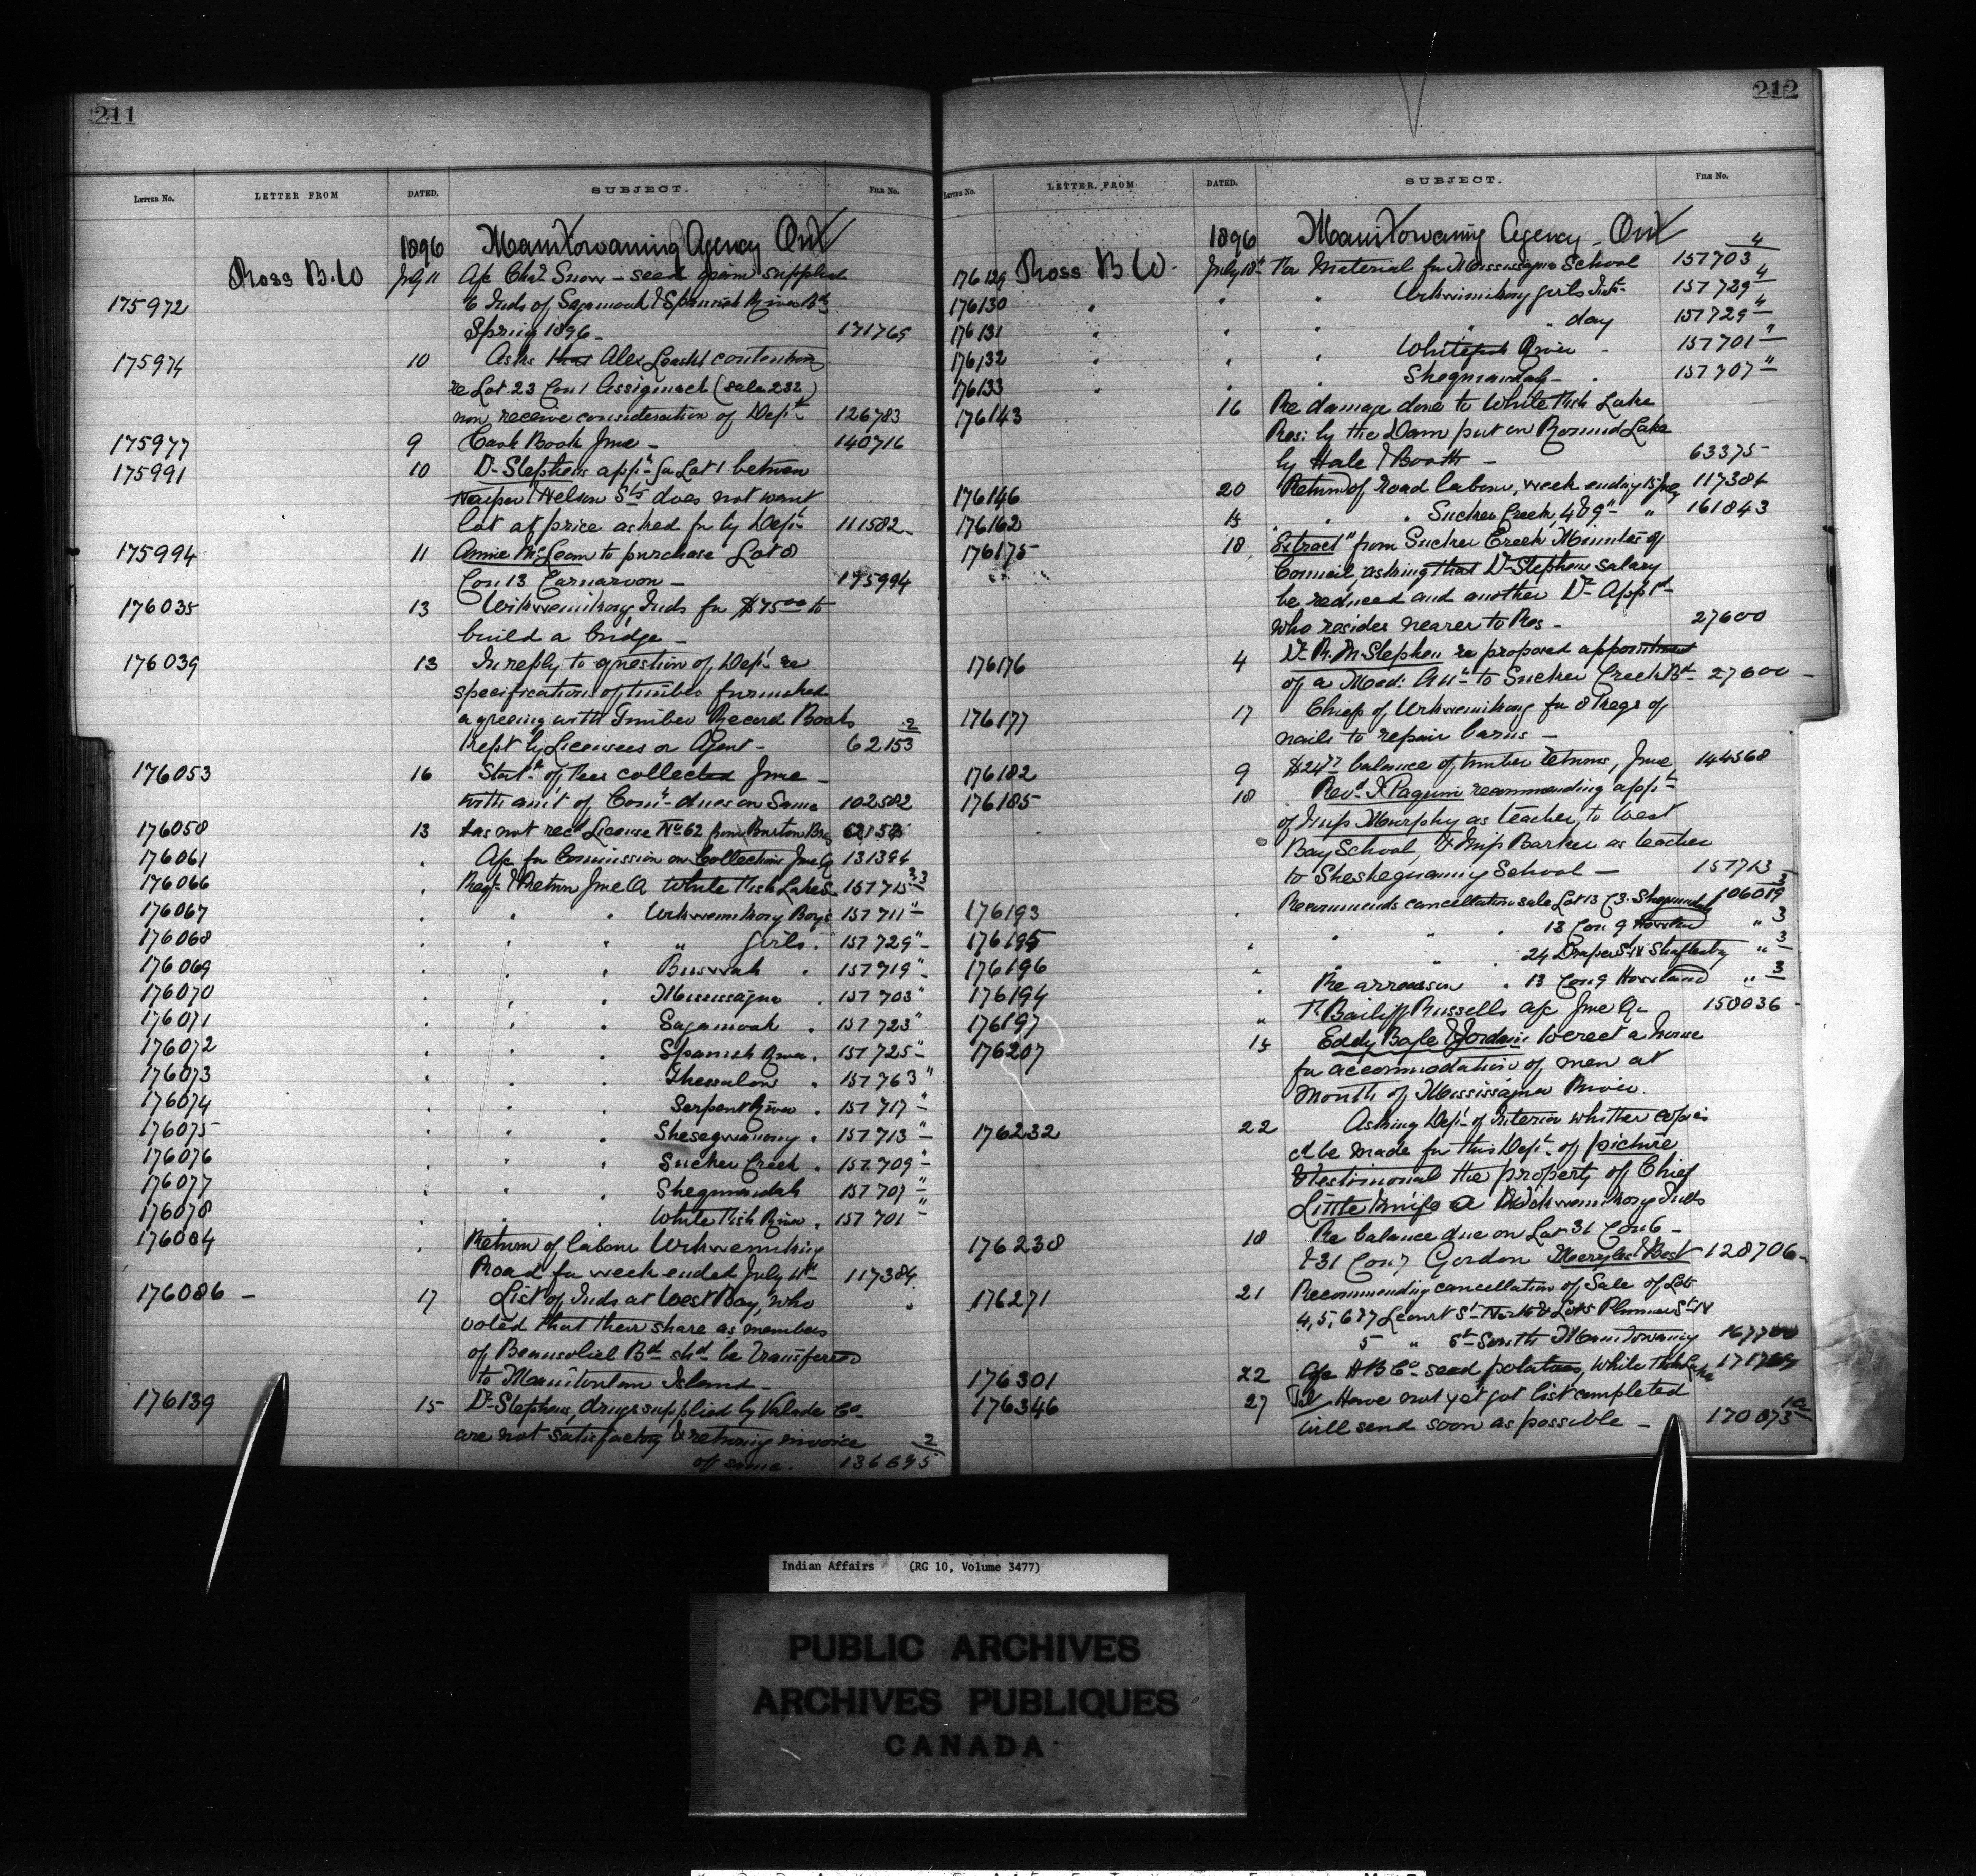 211
LETTER No. LETTER FROM DATED. SUBJECT. FILE No.
1896 Manitowaning Agency Ont
Ross B. W July 11 a/c Chas Snow – seed grain supplied
175972 to Inds of Sagamook & Spanish River Bds
Spring 1896 – 171769
175974 10 Asks that Alex contention
re Lot 23 Con 1 Assiginack (Sale 232)
now receive consideration of Dept 126783
175977 9 Cash Book June – 140716
175991 10 Dr Stephens appn for Lot 1 between
Napier & Nelson Sts does not want
lot at price asked for by Dept 111582
175994 11 Annie McLean to purchase Lot 8
Con 13 Carnarvon – 175994
176035 13 Wikwemikong Inds for $75.00 to
build a bridge –
176039 13 In reply to question of Dept re
specifications of timber furnished
agreeing with Timber Record Books
kept by Licensees or Agent – 62153 2
176053 16 Statt of fees collected June –
with amt of Comn dues on Same 102582
176058 13 Has not recd License No 62 from Burton Bros
176061 " a/c for Commission on Collections June Q 131394
176066 " Regr & Return June Q White Fish Lake S. 157715
176067 " " " Wikwemikong Boys 157711 "
176068 " " " " Girls . 157729 "
176069 " " " Buswah . 157719 "
176070 " " " Mississagua . 157703 "
176071 " " " Sagamook . 157723 "
176072 " " " Spanish River . 157725 "
176073 " " " Thessalon . 157763 "
176074 " " " Serpent River . 157717 "
176075 " " " Shesegwaning . 157713 "
176076 " " " Sucker Creek . 157709 "
176077 " " " Sheguiandah 157707 "
176078 " " " White Fish River . 157701 "
176084 " Return of labour Wikwemikong
Road for week ended July 11th 117384
176086 – 17 List of Inds at West Bay, who
voted that their share as members
of Beausoliel Bd shd be transferred
to Manitoulin Island –
176139 15 Dr Stephens, drugs supplied by Valade Co
are not satisfactory & returning invoice
of same. 136695 2
212
LETTER No. LETTER FROM DATED. SUBJECT. FILE No.
1896 Manitowaning Agency – Ont
176129 Ross B W. July 18th Re Material for Mississagua School 157703 4
176130 " " " Wikwemikong girls Inds 157729 4
176131 " " " " " day 157729 4
176132 " " " Whitefish River – 157701 "
176133 " " " Sheguiandah – 157707 "
176143 16 Re damage done to White Fish Lake
Res: by the Dam put in Round Lake
by Hale & Booth – 63375
176146 20 Return of road labour, week ending 18 July 117384
176162 15 " " Sucker Creek, 4 & 9 " " 161843
176175 18 "Extract" from Sucker Creek Minutes of
Council, asking that Dr Stephens salary
be reduced and another Dr Apptd
who resides nearer to Res – 27600
176176 4 Dr R. M. Stephen re proposed appointment
of a Med: Att to Sucker Creek Bd 27600
176177 17 Chiefs of Wikwemikong for 8 kegs of
nails to repair barns –
176182 9 balance of timber returns, June 144568
176185 18 Revd Paquin recommending appt
of Miss Murphy as teacher, to West
Bay School, & Miss Barker as teacher
to Sheshegwaning School – 157713
176193 " Recommends cancellation sale Lot 13 C 3. Sheguiandah 106019 3
176195 " " " " 13 Con 9 Howland " 3
176196 " " " " 24 Draper St N Shaftesbury " 3
176194 " Re arrears on . 13 Con 9 Howland " 3
176197 " T. Bailiff Russells a/c June Q – 158036
176207 15 Eddy Bayle & Jordain to erect a house
for accommodation of men at
Mouth of Mississagua River.
176232 22 Asking Dept of Interior whether copies
cd be made for this Dept of picture
& testimonial the property of Chief
Little Knife a Wikwemikong Inds
176238 18 Re balance due on Lot 31 Con 6 –
& 31 Con 7 Gordon Merrylest & Best 128706
176271 21 Recommending cancellation of Sale of Lots
4, 5, 6 & 7 St North & Lots Plummer St N
5 " St South Manitowaning 167700
176301 22 a/c H B Co seed potatoes, White Fish Lake 171769
176346 27 Tel Have not yet got list completed
will send soon as possible – 170073
Indian Affairs (RG 10, Volume 3477)
PUBLIC ARCHIVES
ARCHIVES PUBLIQUES
CANADA